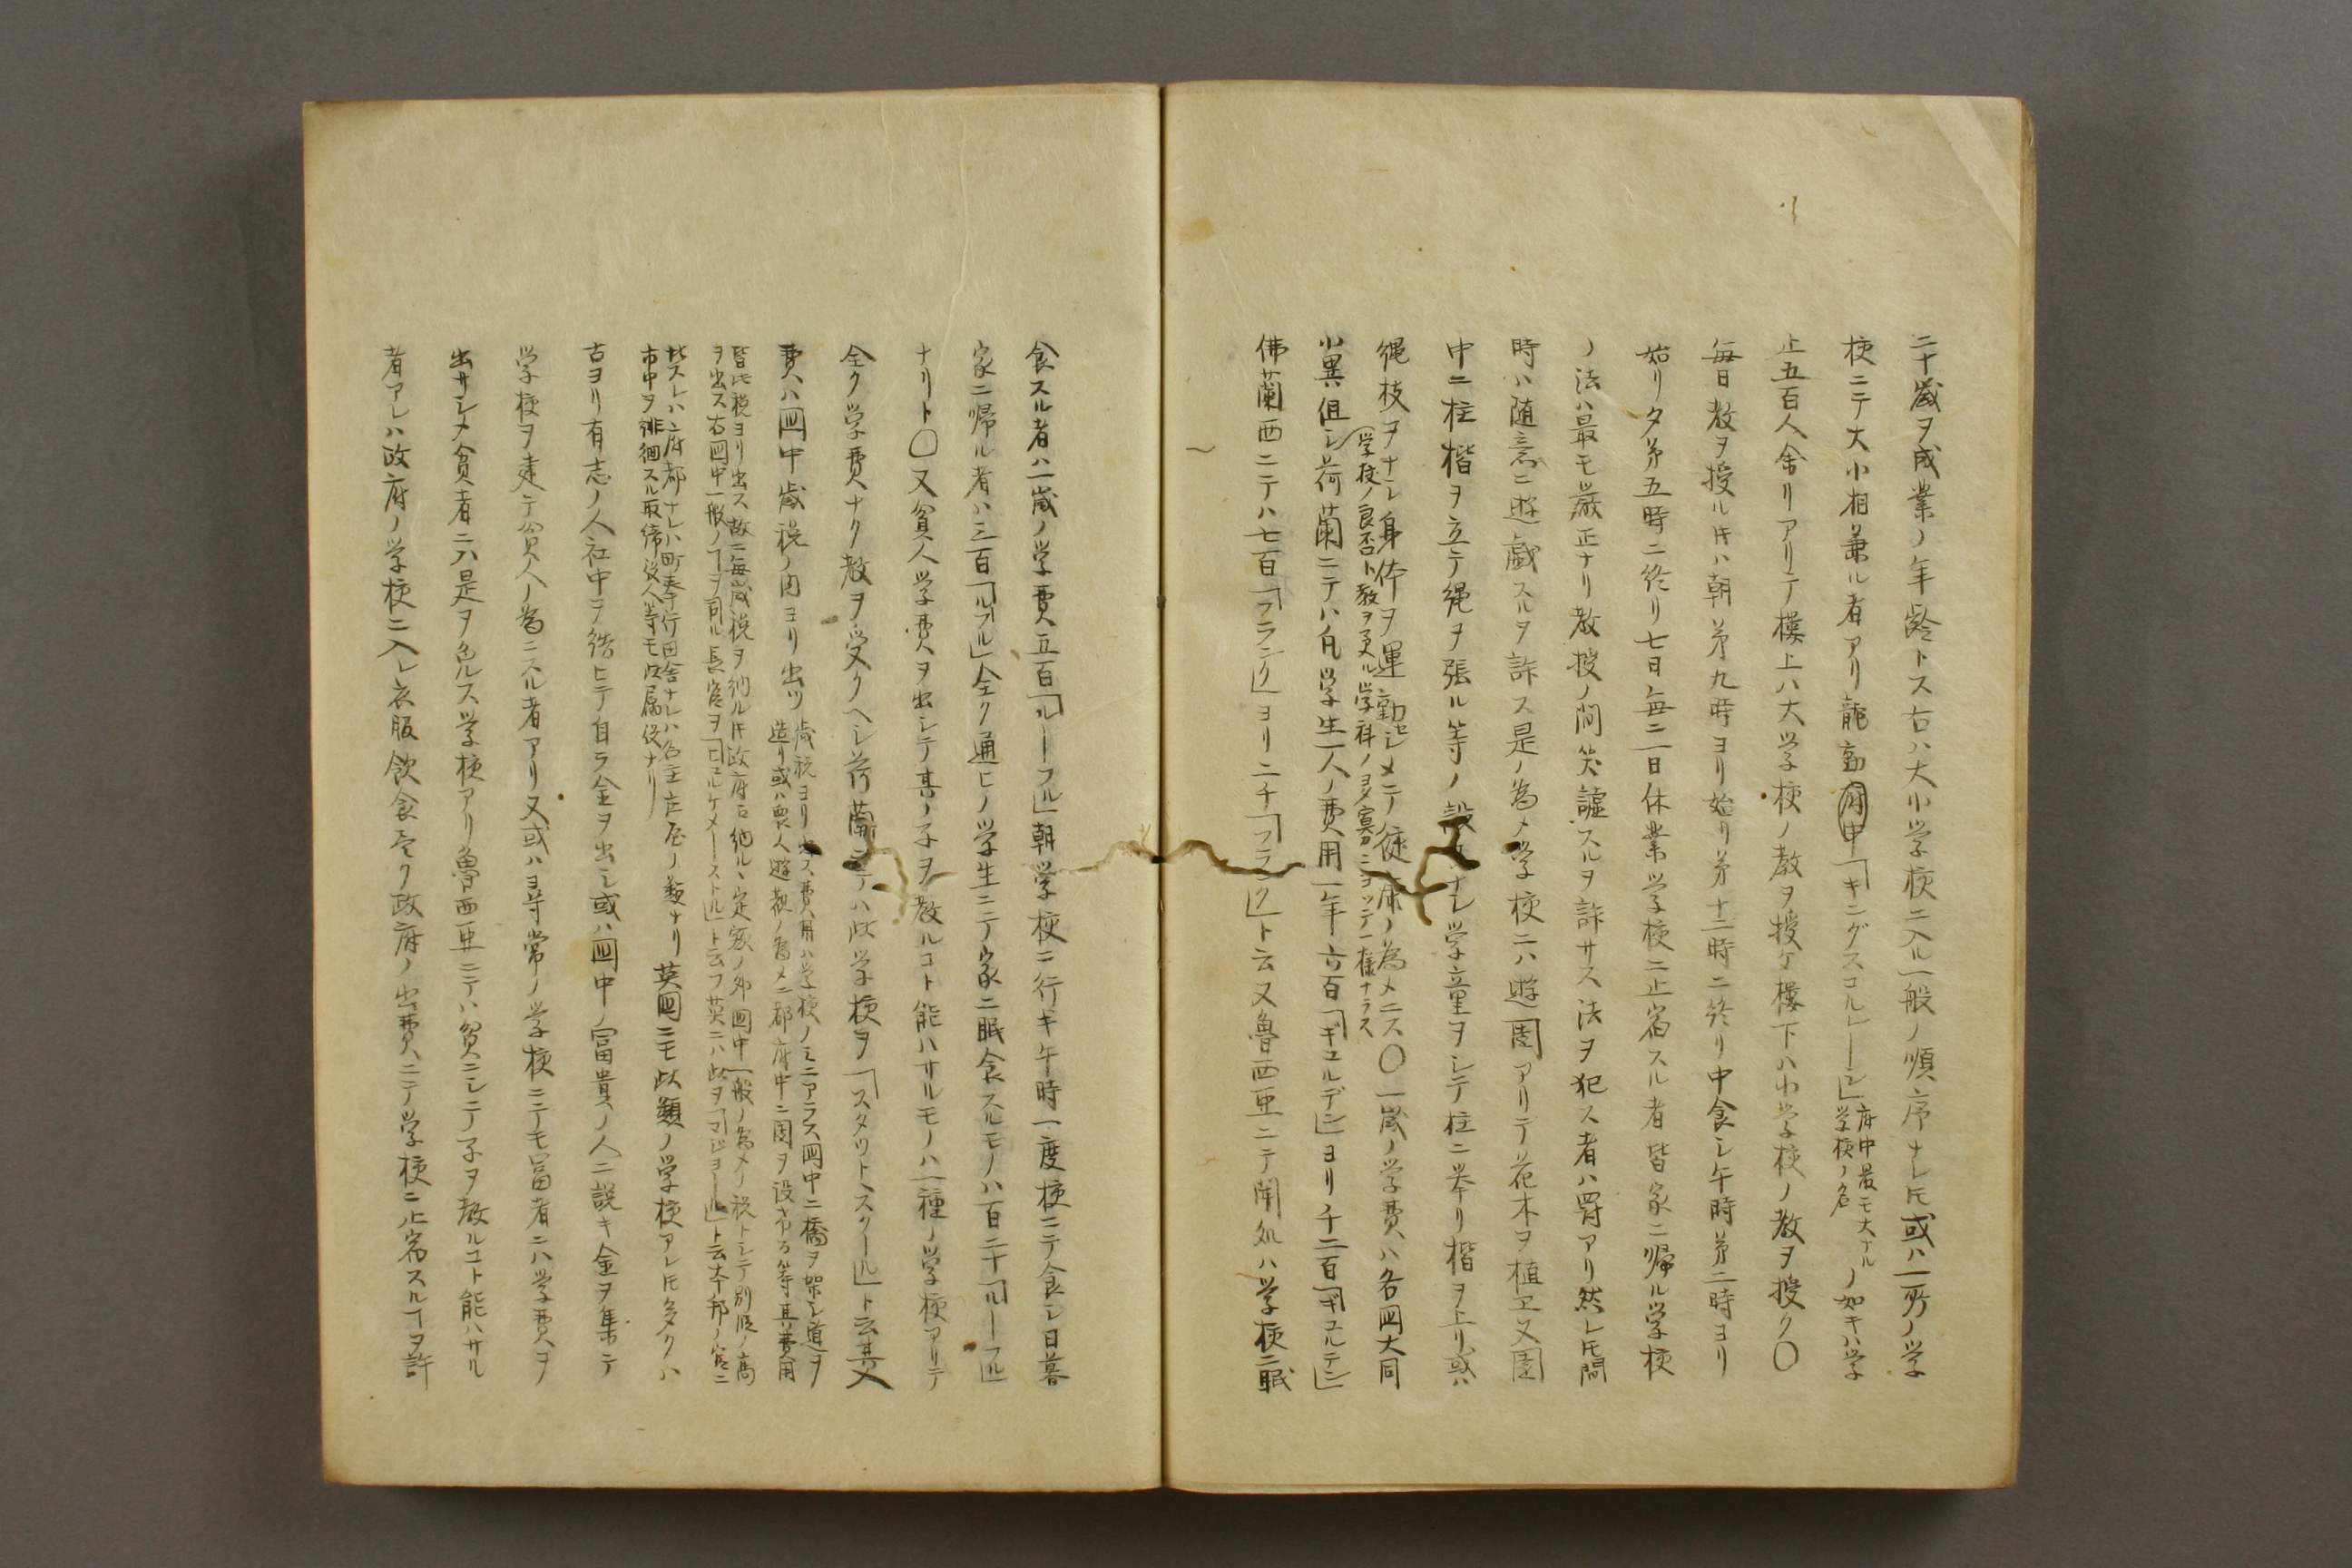 二十歳ヲ成業ノ年齢トス右ハ大小学校ニ入ル一般ノ順序ナレ𪜈或ハ一所ノ学
校ニテ大小相兼ル者アリ龍動府中「キングスコルレーシ」府中最モ大ナル学校ノ名ノ如キハ学
生五百人余リアリテ樓上ハ大学校ノ教ヲ授ケ樓下ハ小学校ノ教ヲ授ク〇
毎日教ヲ授ル𪜈ハ朝第九時ヨリ始リ第十二時ニ終リ中食シ午時第二時ヨリ
始リ夕第五時ニ終リ七日毎ニ一日休業学校ニ止宿スル者皆家ニ帰ル学校
ノ法ハ最モ厳正ナリ教授ノ間笑謔スルヲ許サス法ヲ犯ス者ハ罸アリ然レ𪜈間
時ハ随意ニ遊戯スルヲ許ス是ノ為メ学校ニハ遊園アリテ花木ヲ植ヱ又園
中ニ柱楷ヲ立テ縄ヲ張ル等ノ設ヲナシ学童ヲシテ柱ニ挙リ楷ヲ上リ或ハ
縄技ヲナシ身体ヲ運動セシメテ健康ノ為メニス〇一歳ノ学費ハ各国大同
小異但シ学校ノ良否ト教ヲ受ル学科ノ多寡ニヨッテ一様ナラス荷蘭ニテハ凡学生一人ノ費用一年六百「ギュルデン」ヨリ千二百「ギュルデン」
佛蘭西ニテハ七百「フランク」ヨリ二千「フランク」ト云又魯西亜ニテ聞処ハ学校ニ眠
食スル者ハ一歳ノ学費五百「ルーフル」朝学校ニ行キ午時一度校ニテ食シ日暮
家ニ帰ル者ハ三百「ルーフル」全ク通ヒノ学生ニテ家ニ眠食スルモノハ百二十「ルーフル」
ナリト〇又貧人学費ヲ出シテ其ノ子ヲ教ルコト能ハサルモノハ一種ノ学校アリテ
全ク学費ナク教ヲ受クヘシ荷蘭ニテハ此学校ヲ「スタットスクール」ト云其入
費ハ国中歳税ノ内ヨリ出ツ歳税ヨリ出ス費用ハ学校ノミニアラス国中ニ橋ヲ架シ道ヲ
造リ或ハ衆人遊観ノ為メニ都府中ニ園ヲ設ケル等其費用
皆此税ヨリ出ス故ニ毎歳税ヲ納ル𪜈政府ニ納ル丶定額ノ外国中一般ノ為メノ税トシテ別段ノ高
ヲ出ス右国中一般ノヿヲ司ル長官ヲ「ビュルケメーストル」ト云フ英ニハ此ヲ「マヨール」ト云本邦ノ官ニ
比スレハ府都ナレハ町奉行田舎ナレハ名主庄屋ノ類ナリ
市中ヲ徘徊スル取締役人等モ此属役ナリ英国ニモ此類ノ学校アレ𪜈多クハ
古ヨリ有志ノ人社中ヲ結ヒテ自ラ金ヲ出シ或ハ国中ノ富貴ノ人ニ説キ金ヲ集テ
学校ヲ建テ貧人ノ為ニスル者アリ又或ハ尋常ノ学校ニテモ富者ニハ学費ヲ
出サシメ貧者ニハ是ヲ免ルス学校アリ魯西亜ニテハ貧ニシテ子ヲ教ルコト能ハサル
者アレハ政府ノ学校ニ入レ衣服飲食尽ク政府ノ出費ニテ学校ニ止宿スルヿヲ許